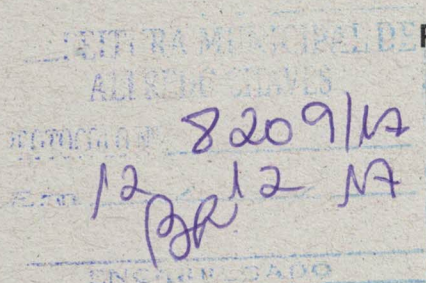 PREFEITURA MUNICIPAL DE
ALFREDO CHAVES
PROTOCOLO Nº 8209/17
Em 12 12 17
ENCARREGADO